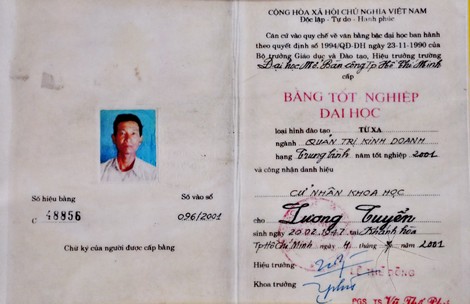 Số hiệu bằng
Số vào sổ
C 48856
096/2001
Chữ ký của người được cấp bằng
CỘNG HÒA XÃ HỘI CHỦ NGHĨA VIỆT NAM
Độc lập - Tự do - Hạnh phúc
Căn cứ vào quy chế về văn bằng bậc đại học ban hành
theo quyết định số 1994/QĐ-ĐH ngày 23-11-1990 của
Bộ trưởng Giáo dục và Đào tạo, Hiệu trưởng trường
Đại học Mở Bán công Tp Hồ Chí Minh
cấp
BẰNG TỐT NGHIỆP
ĐẠI HỌC
loại hình đào tạo TỪ XA
ngành QUẢN TRỊ KINH DOANH
hạng Trung bình năm tốt nghiệp 2001
và công nhận danh hiệu
CỬ NHÂN KHOA HỌC
cho Lương Tuyển
sinh ngày 20.02. tại Khánh hòa
Tp Hồ Chí Minh ngày tháng năm 2001
Hiệu trưởng
Khoa trưởng
PGS. TS